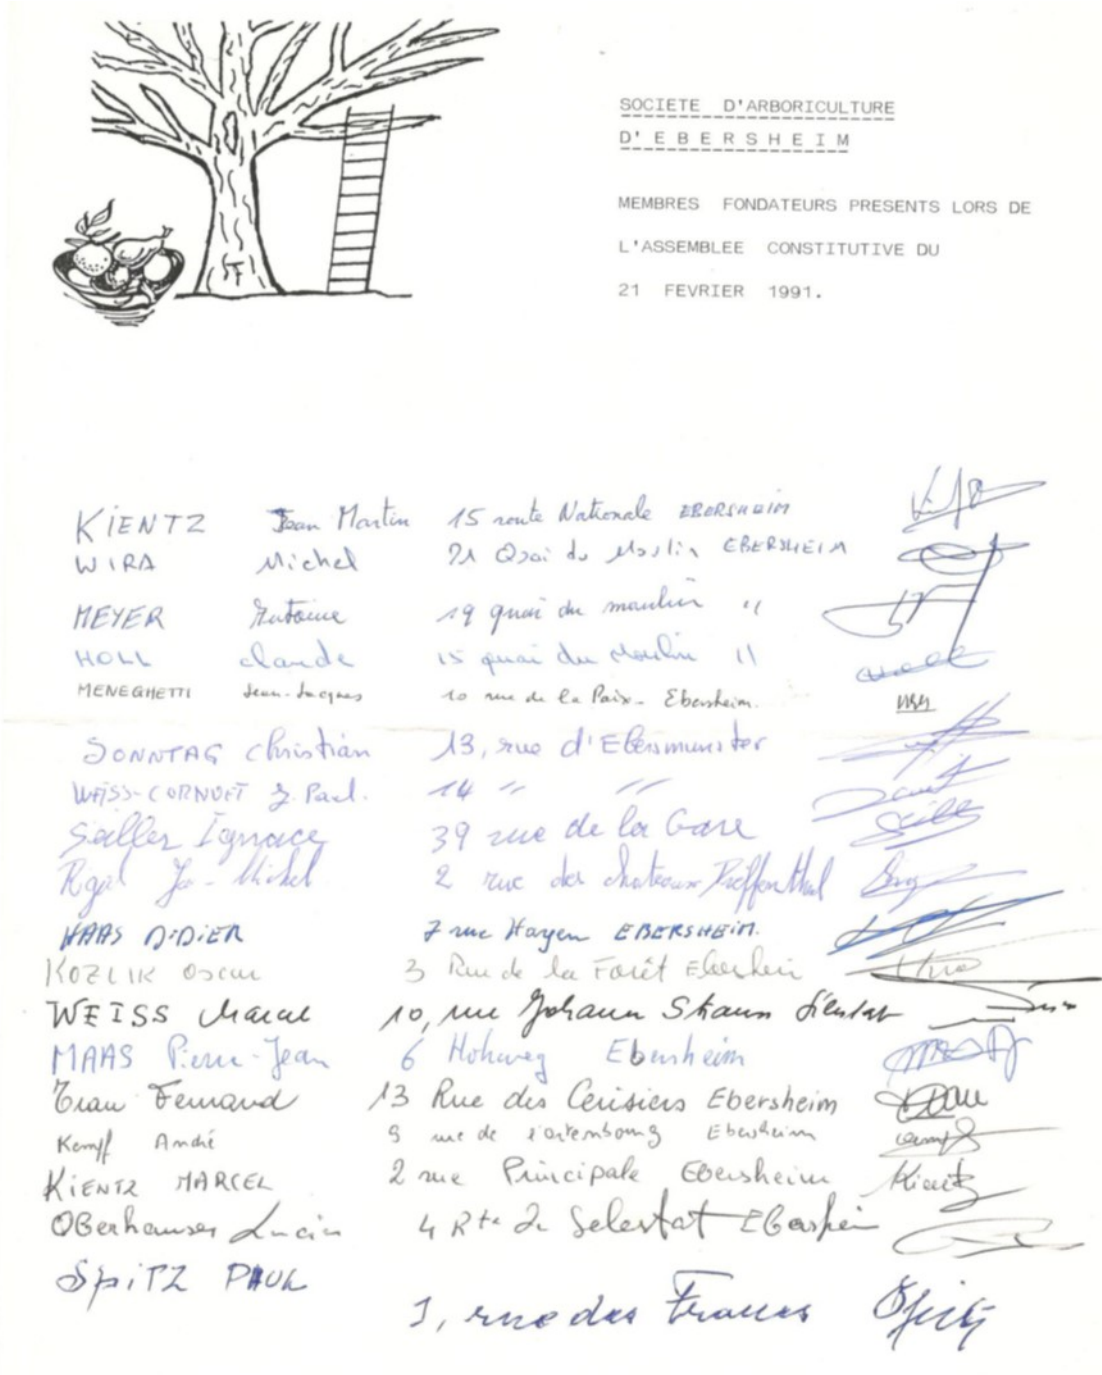 SOCIETE D'ARBORICULTURE
D'EBERSHEIM
MEMBRES FONDATEURS PRESENTS LORS DE
L'ASSEMBLEE CONSTITUTIVE DU
21 FEVRIER 1991.
KIENTZ Jean Martin 15 route Nationale EBERSHEIM
WIRA Michel 21 Quai du Moulin EBERSHEIM
MEYER Antoine 19 quai du moulin "
HOLL claude 15 quai du Moulin "
MENEGHETTI Jean-Jacques 10 rue de la Paix - Ebersheim.
SONNTAG christian 13, rue d'Ebersmunster
WEISS-CORNUET J. Paul. 14 " "
Sailler Ignace 39 rue de la Gare
Jo-Michel 2 rue des chateaux Dieffenthal
HAAS DIDIER 7 rue EBERSHEIM.
KOZLIK Oscar 3 Rue de la Forêt Ebersheim
WEISS Marcel 10, rue Johann Strauss
MAAS Pierre-Jean 6 Hohweg Ebersheim
Trau Fernand 13 Rue des Cerisiers Ebersheim
Kempf André 9 rue de Ebersheim
KIENTZ MARCEL 2 rue Principale Ebersheim Kientz
OBerhauser Lucien 4 Rte de Selestat EBersheim
SpiTZ PAUL
1, rue des Francs